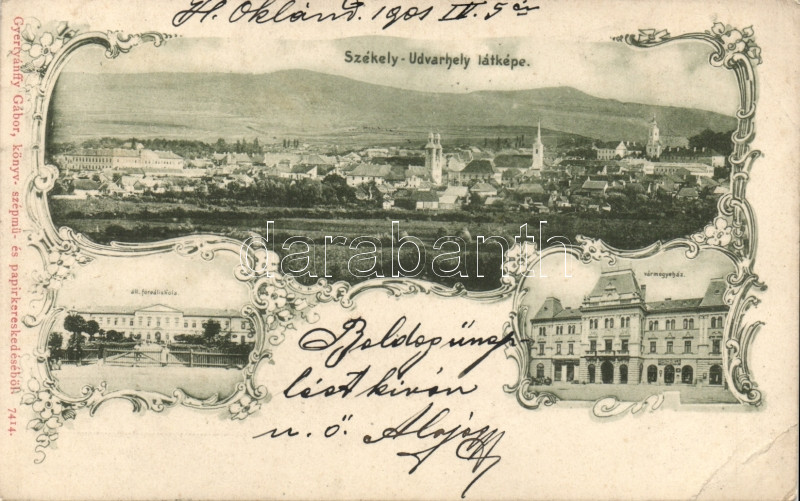 H. Oklánd. 1901 IV. 5 én
Székely-Udvarhely látképe.
Gyertyánffy Gábor, könyv- szépmű- és papirkereskedéséből 7414.
áll. főreáliskola.
vármegyeház.
darabanth.com
Boldog ünnep-
lést kíván
n. ö. Alajos